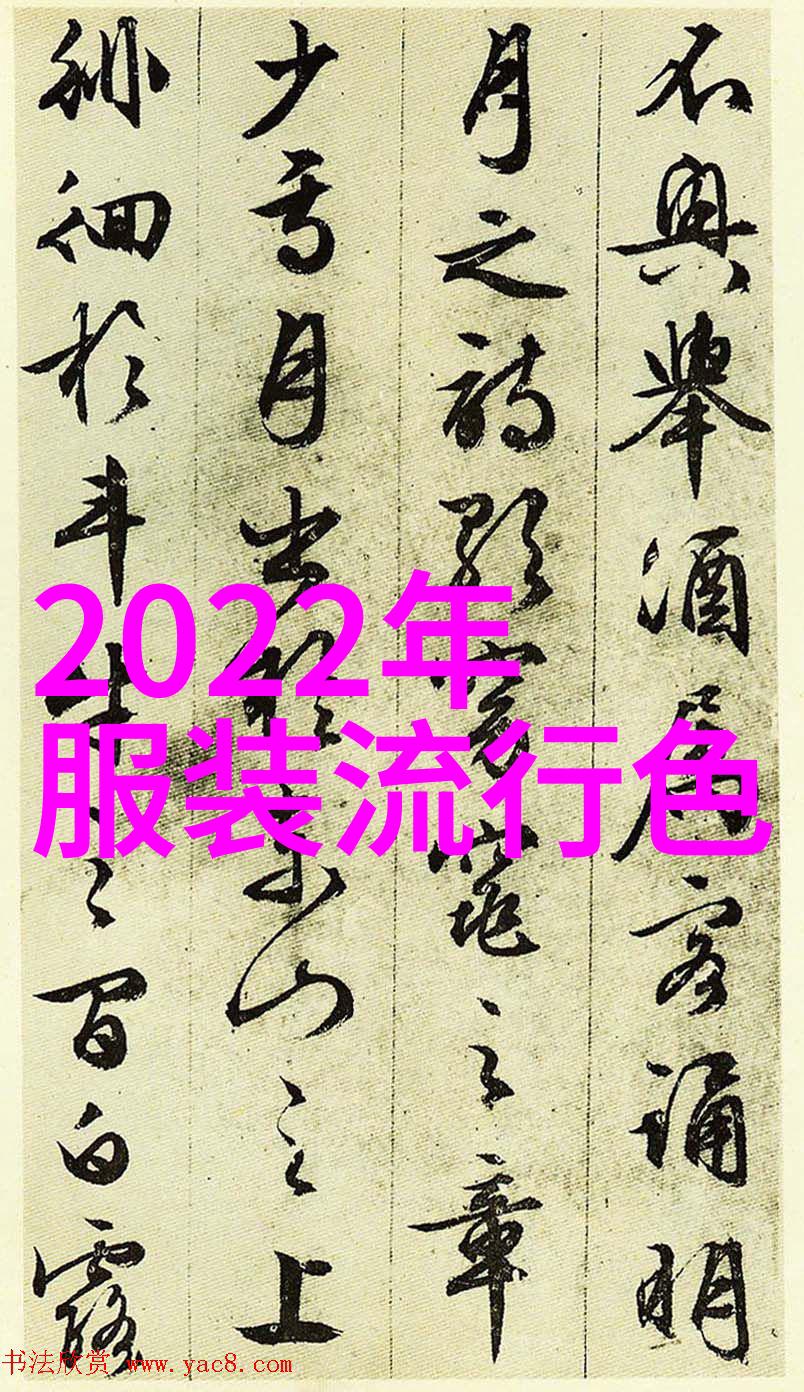 不興舉酒属客誦明
月之詩歌窈窕之章
少焉月出於東山之上
徘徊於斗牛之間白露
2022年
服装流行色
书法欣赏 www.yac8.com